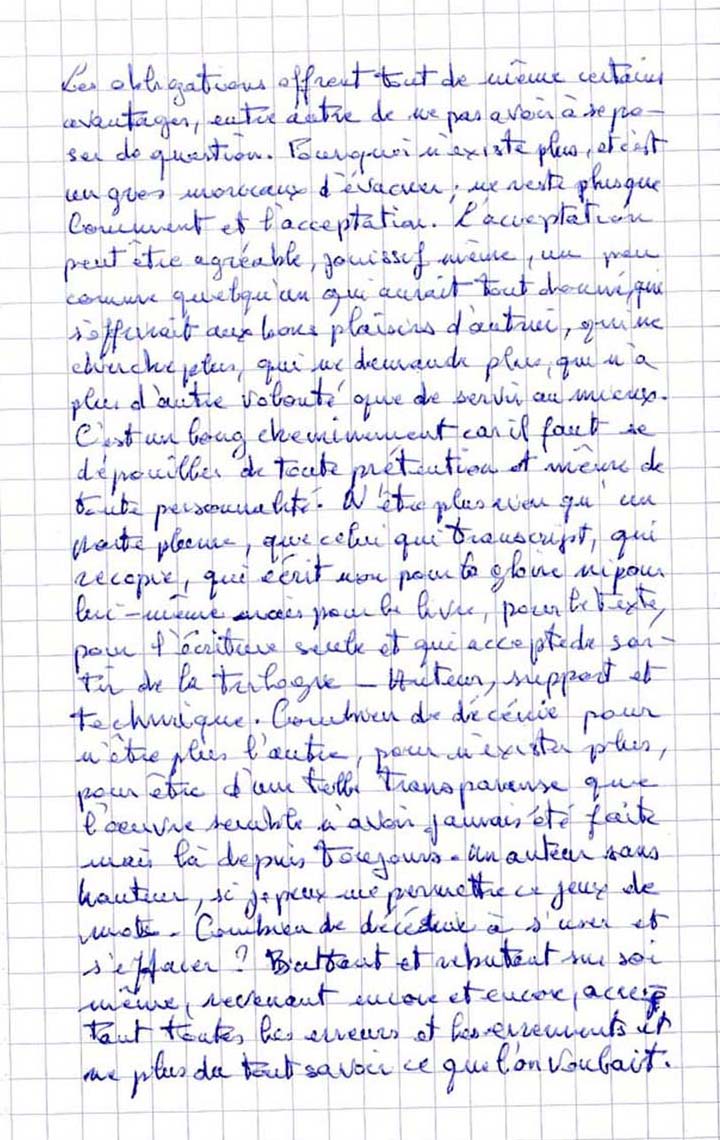 Les obligations offrent tout de même certains
avantages, entre autre de ne pas avoir à se po-
ser de question. Pourquoi n'existe plus, et c'est
un gros morceaux d'évacuer ; ne reste plus que
Comment et l'acceptation. L'acceptation
peut être agréable, jouissif même, un peu
comme quelqu'un qui aurait tout donné, qui
s'offrirait aux bons plaisirs d'autrui, qui ne
cherche plus, qui ne demande plus, qui n'a
plus d'autre volonté que de servir au mieux.
C'est un long cheminement car il faut se
dépouiller de toute prétention et même de
toute personnalité. N'être plus rien qu'un
porte plume, que celui qui transcript, qui
recopie, qui écrit non pour la gloire ni pour
lui-même mais pour le livre, pour le texte,
pour l'écriture seule et qui accepte de sor-
tir de la trilogie - Auteur, support et
technique. Combien de décénie pour
n'être plus l'autre, pour n'exister plus,
pour être d'une telle transparense que
l'oeuvre semble n'avoir jamais été faite
mais là depuis toujours. Un auteur sans
hauteur, si je peux me permettre ce jeux de
mots. Combien de décénie à s'user et
s'effacer ? Battant et rebutant sur soi
même, revenant encore et encore, accep
tant toutes les erreurs et les errements et
ne plus du tout savoir ce que l'on voulait.